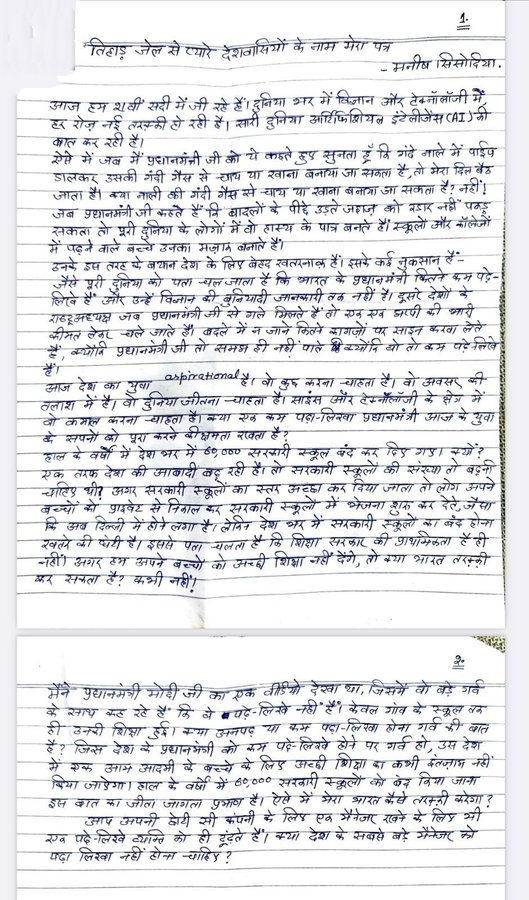 1.
तिहाड़ जेल से प्यारे देशवासियों के नाम मेरा पत्र
- मनीष सिसोदिया.
आज हम 21वीं सदी में जी रहे हैं। दुनिया भर में विज्ञान और टेक्नॉलॉजी में,
हर रोज़ नई तरक्की हो रही है। सारी दुनिया आर्टिफिशियल इंटेलीजेंस (AI) की
बात कर रही है।
ऐसे में जब मैं प्रधानमंत्री जी को ये कहते हुए सुनता हूँ कि गंदे नाले में पाईप
डालकर उसकी गंदी गैस से चाय या खाना बनाया जा सकता है, तो मेरा दिल बैठ
जाता है। क्या नाली की गंदी गैस से चाय या खाना बनाया जा सकता है? नहीं!
जब प्रधानमंत्री जी कहते हैं कि बादलों के पीछे उड़ते जहाज़ को रडार नहीं पकड़
सकता तो पूरी दुनिया के लोगों में वो हास्य के पात्र बनते हैं। स्कूलों और कॉलेजों
में पढ़ने वाले बच्चे उनका मज़ाक बनाते हैं।
उनके इस तरह के बयान देश के लिए बेहद खतरनाक हैं। इसके कई नुकसान हैं:-
जैसे पूरी दुनिया को पता चल जाता है कि भारत के प्रधानमंत्री कितने कम पढ़े-
लिखे हैं और उन्हें विज्ञान की बुनियादी जानकारी तक नहीं है। दूसरे देशों के
राष्ट्रअध्यक्ष जब प्रधानमंत्री जी से गले मिलते हैं तो एक एक झप्पी की भारी
कीमत लेकर चले जाते हैं। बदले में न जाने कितने कागज़ों पर साइन करवा लेते
हैं, क्योंकि प्रधानमंत्री जी तो समझ ही नहीं पाते क्योंकि वो तो कम पढ़े लिखे
हैं।
आज देश का युवा aspirational है। वो कुछ करना चाहता है। वो अवसर की
तलाश में है। वो दुनिया जीतना चाहता है। साइंस और टेक्नॉलॉजी के क्षेत्र में
वो कमाल करना चाहता है। क्या एक कम पढ़ा-लिखा प्रधानमंत्री आज के युवा
के सपनों को पूरा करने की क्षमता रखता है?
हाल के वर्षों में देश भर में 60,000 सरकारी स्कूल बंद कर दिए गए। क्यों?
एक तरफ देश की आबादी बढ़ रही है। तो सरकारी स्कूलों की संख्या तो बढ़नी
चाहिए थी? अगर सरकारी स्कूलों का स्तर अच्छा कर दिया जाता तो लोग अपने
बच्चों को प्राइवेट से निकाल कर सरकारी स्कूलों में भेजना शुरू कर देते, जैसा
कि अब दिल्ली में होने लगा है। लेकिन देश भर में सरकारी स्कूलों का बंद होना
खतरे की घंटी है। इससे पता चलता है कि शिक्षा सरकार की प्राथमिकता है ही
नहीं। अगर हम अपने बच्चों को अच्छी शिक्षा नहीं देंगे, तो क्या भारत तरक्की
कर सकता है? कभी नहीं!
2.
मैंने प्रधानमंत्री मोदी जी का एक वीडियो देखा था, जिसमें वो बड़े गर्व
के साथ कह रहे हैं कि वे पढ़े-लिखे नहीं हैं। केवल गांव के स्कूल तक
ही उनकी शिक्षा हुई। क्या अनपढ़ या कम पढ़ा-लिखा होना गर्व की बात
है? जिस देश के प्रधानमंत्री को कम पढ़े-लिखे होने पर गर्व हो, उस देश
में एक आम आदमी के बच्चे के लिए अच्छी शिक्षा का कभी इंतज़ाम नहीं
किया जाएगा। हाल के वर्षों में 60,000 सरकारी स्कूलों को बंद किया जाना
इस बात का जीता जागता प्रमाण है। ऐसे में मेरा भारत कैसे तरक्की करेगा?
आप अपनी छोटी सी कंपनी के लिए एक मैनेजर रखने के लिए भी
एक पढ़े-लिखे व्यक्ति को ही ढूंढते हैं। क्या देश के सबसे बड़े मैनेजर को
पढ़ा लिखा नहीं होना चाहिए?